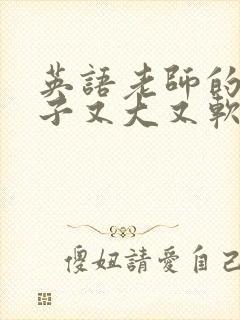 英語老師的
子又大又軟
傻妞請愛自己